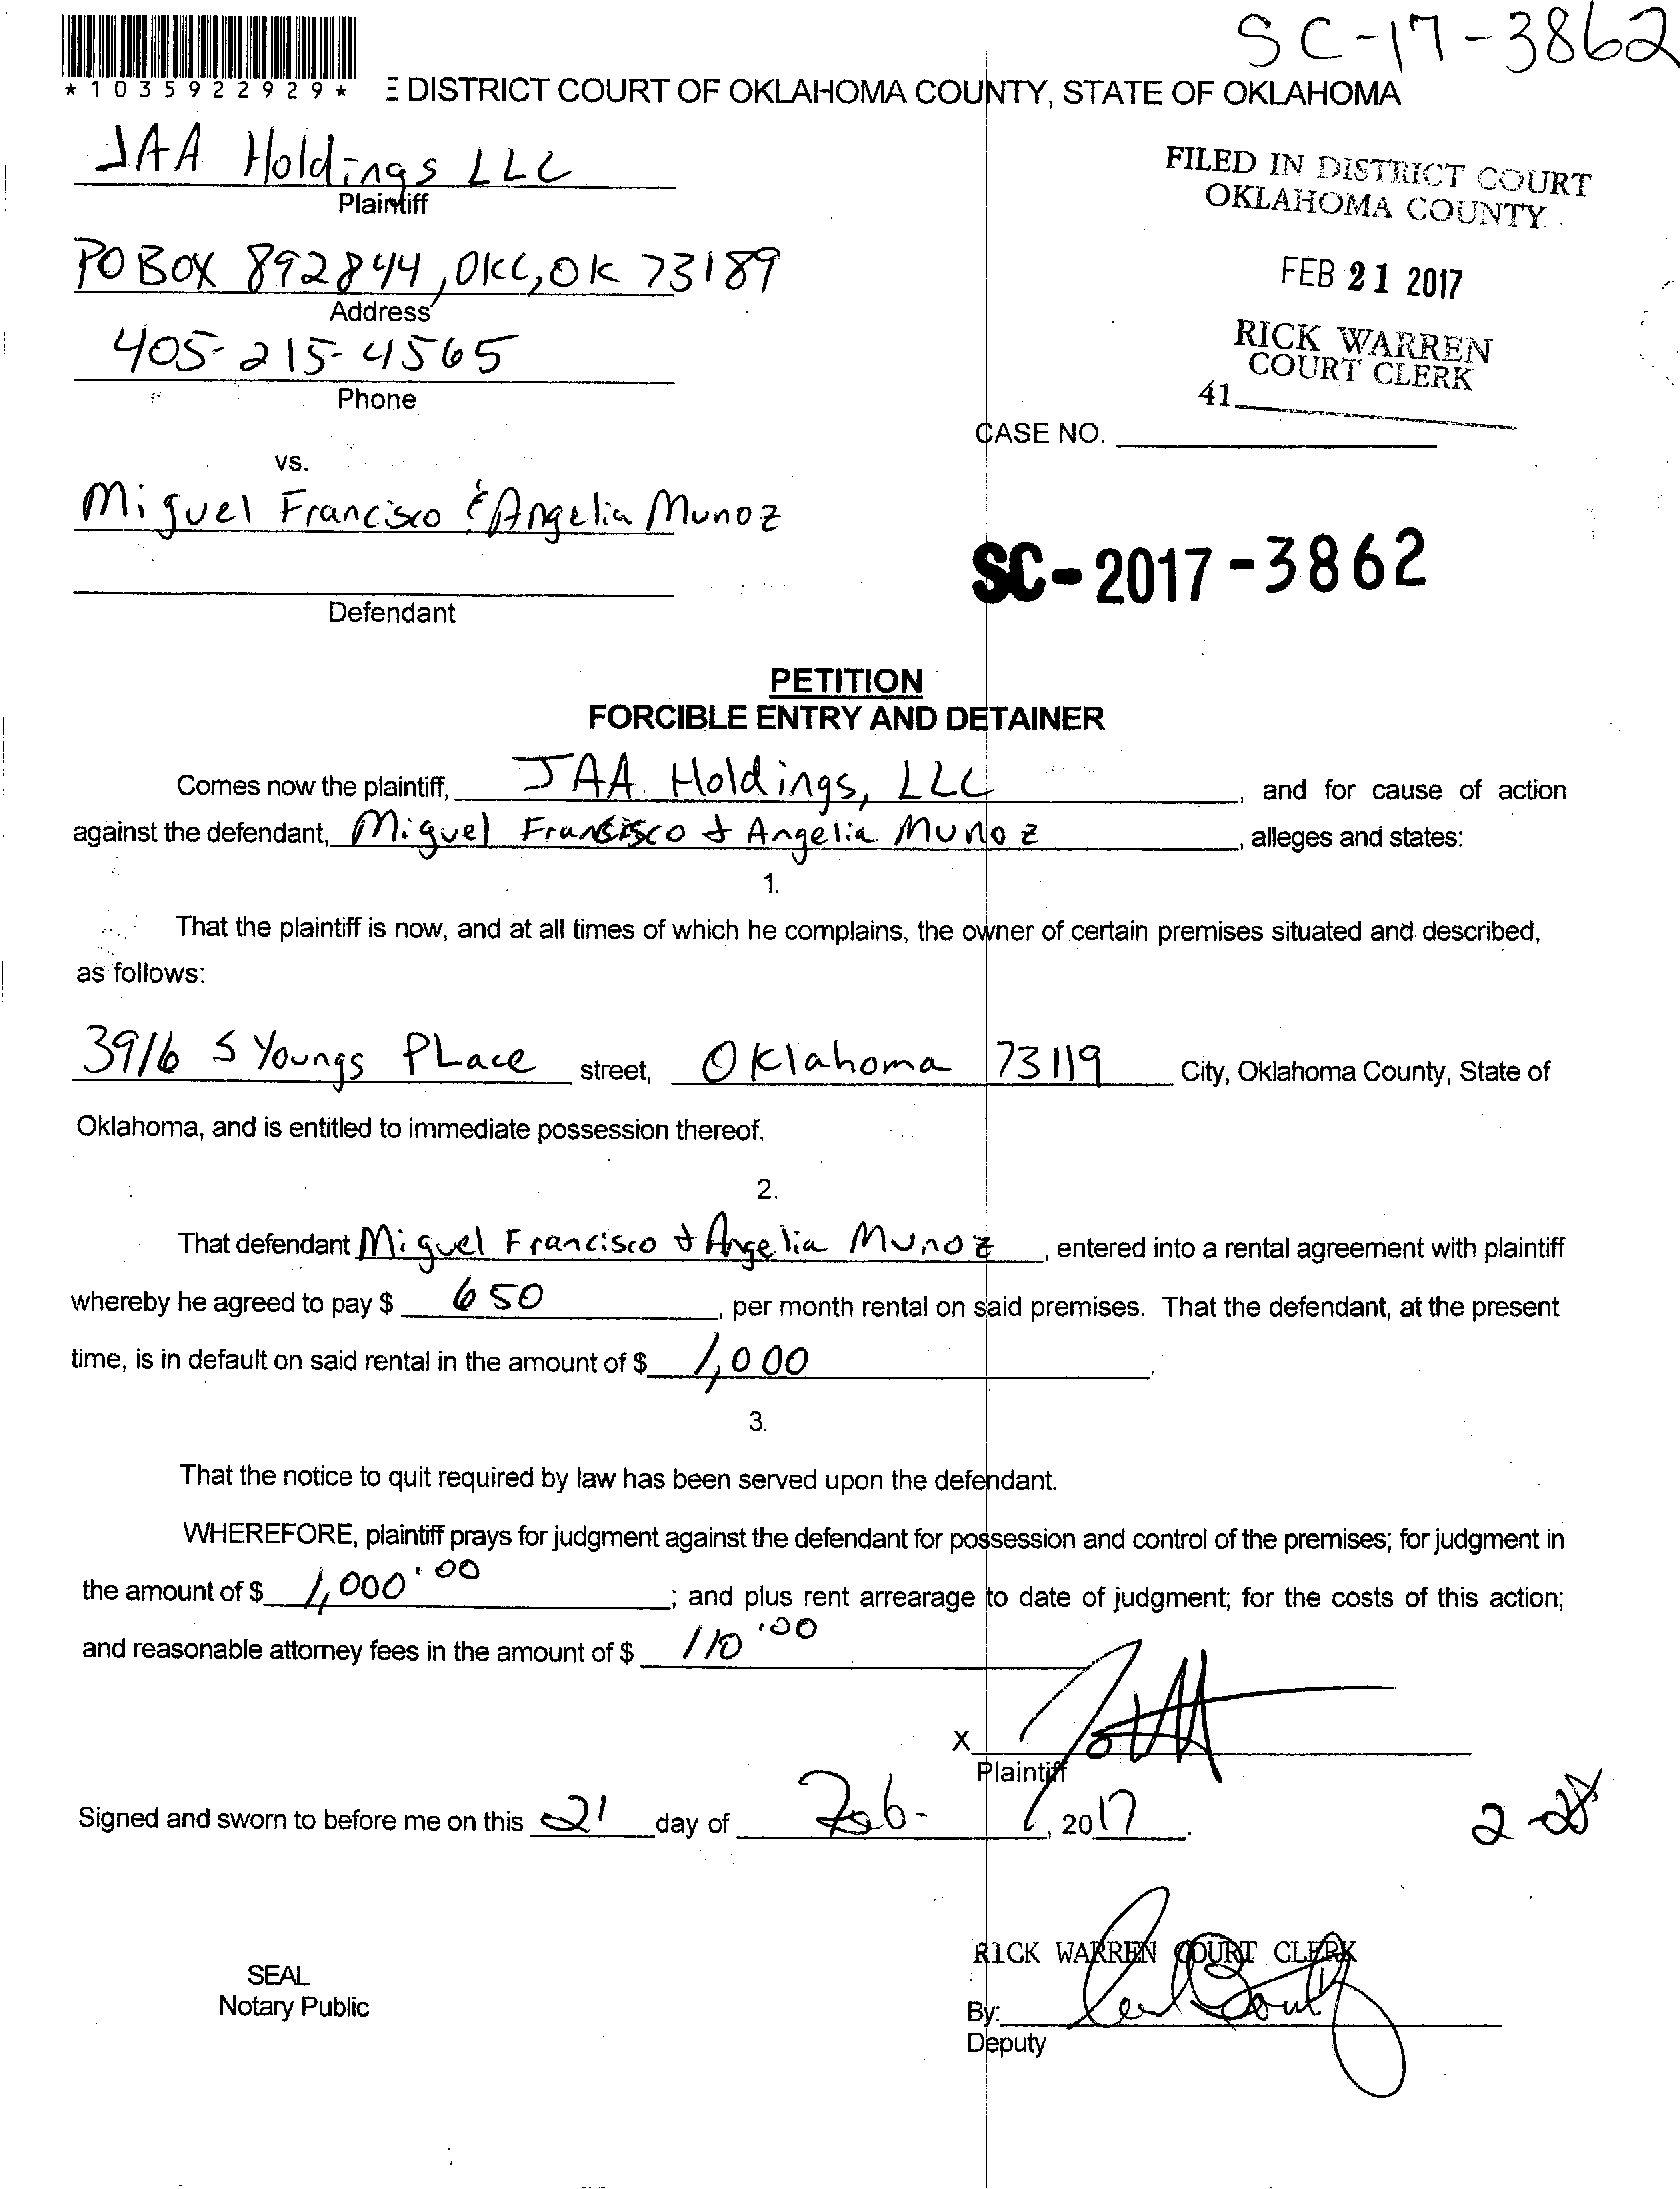 SC-17-3862
*1035922929* E DISTRICT COURT OF OKLAHOMA COUNTY, STATE OF OKLAHOMA
JAA Holdings LLC
Plaintiff
FILED IN DISTRICT COURT
OKLAHOMA COUNTY
PO BOX 892844, OKC, OK 73189
Address
FEB 21 2017
405-215-4565
Phone
RICK WARREN
COURT CLERK
41
CASE NO.
vs.
Miguel Francisco & Angelia Munoz
Defendant
SC-2017-3862
PETITION
FORCIBLE ENTRY AND DETAINER
Comes now the plaintiff, JAA Holdings, LLC, and for cause of action
against the defendant, Miguel Francisco & Angelia Munoz, alleges and states:
1.
That the plaintiff is now, and at all times of which he complains, the owner of certain premises situated and described,
as follows:
3916 S Youngs PLace street, Oklahoma 73119 City, Oklahoma County, State of
Oklahoma, and is entitled to immediate possession thereof.
2.
That defendant Miguel Francisco & Angelia Munoz, entered into a rental agreement with plaintiff
whereby he agreed to pay $ 650, per month rental on said premises. That the defendant, at the present
time, is in default on said rental in the amount of $ 1,000.
3.
That the notice to quit required by law has been served upon the defendant.
WHEREFORE, plaintiff prays for judgment against the defendant for possession and control of the premises; for judgment in
the amount of $ 1,000.00; and plus rent arrearage to date of judgment; for the costs of this action;
and reasonable attorney fees in the amount of $ 110.00
X
Plaintiff
Signed and sworn to before me on this 21 day of Feb-, 2017.
RICK WARREN COURT CLERK
SEAL
Notary Public
By:
Deputy